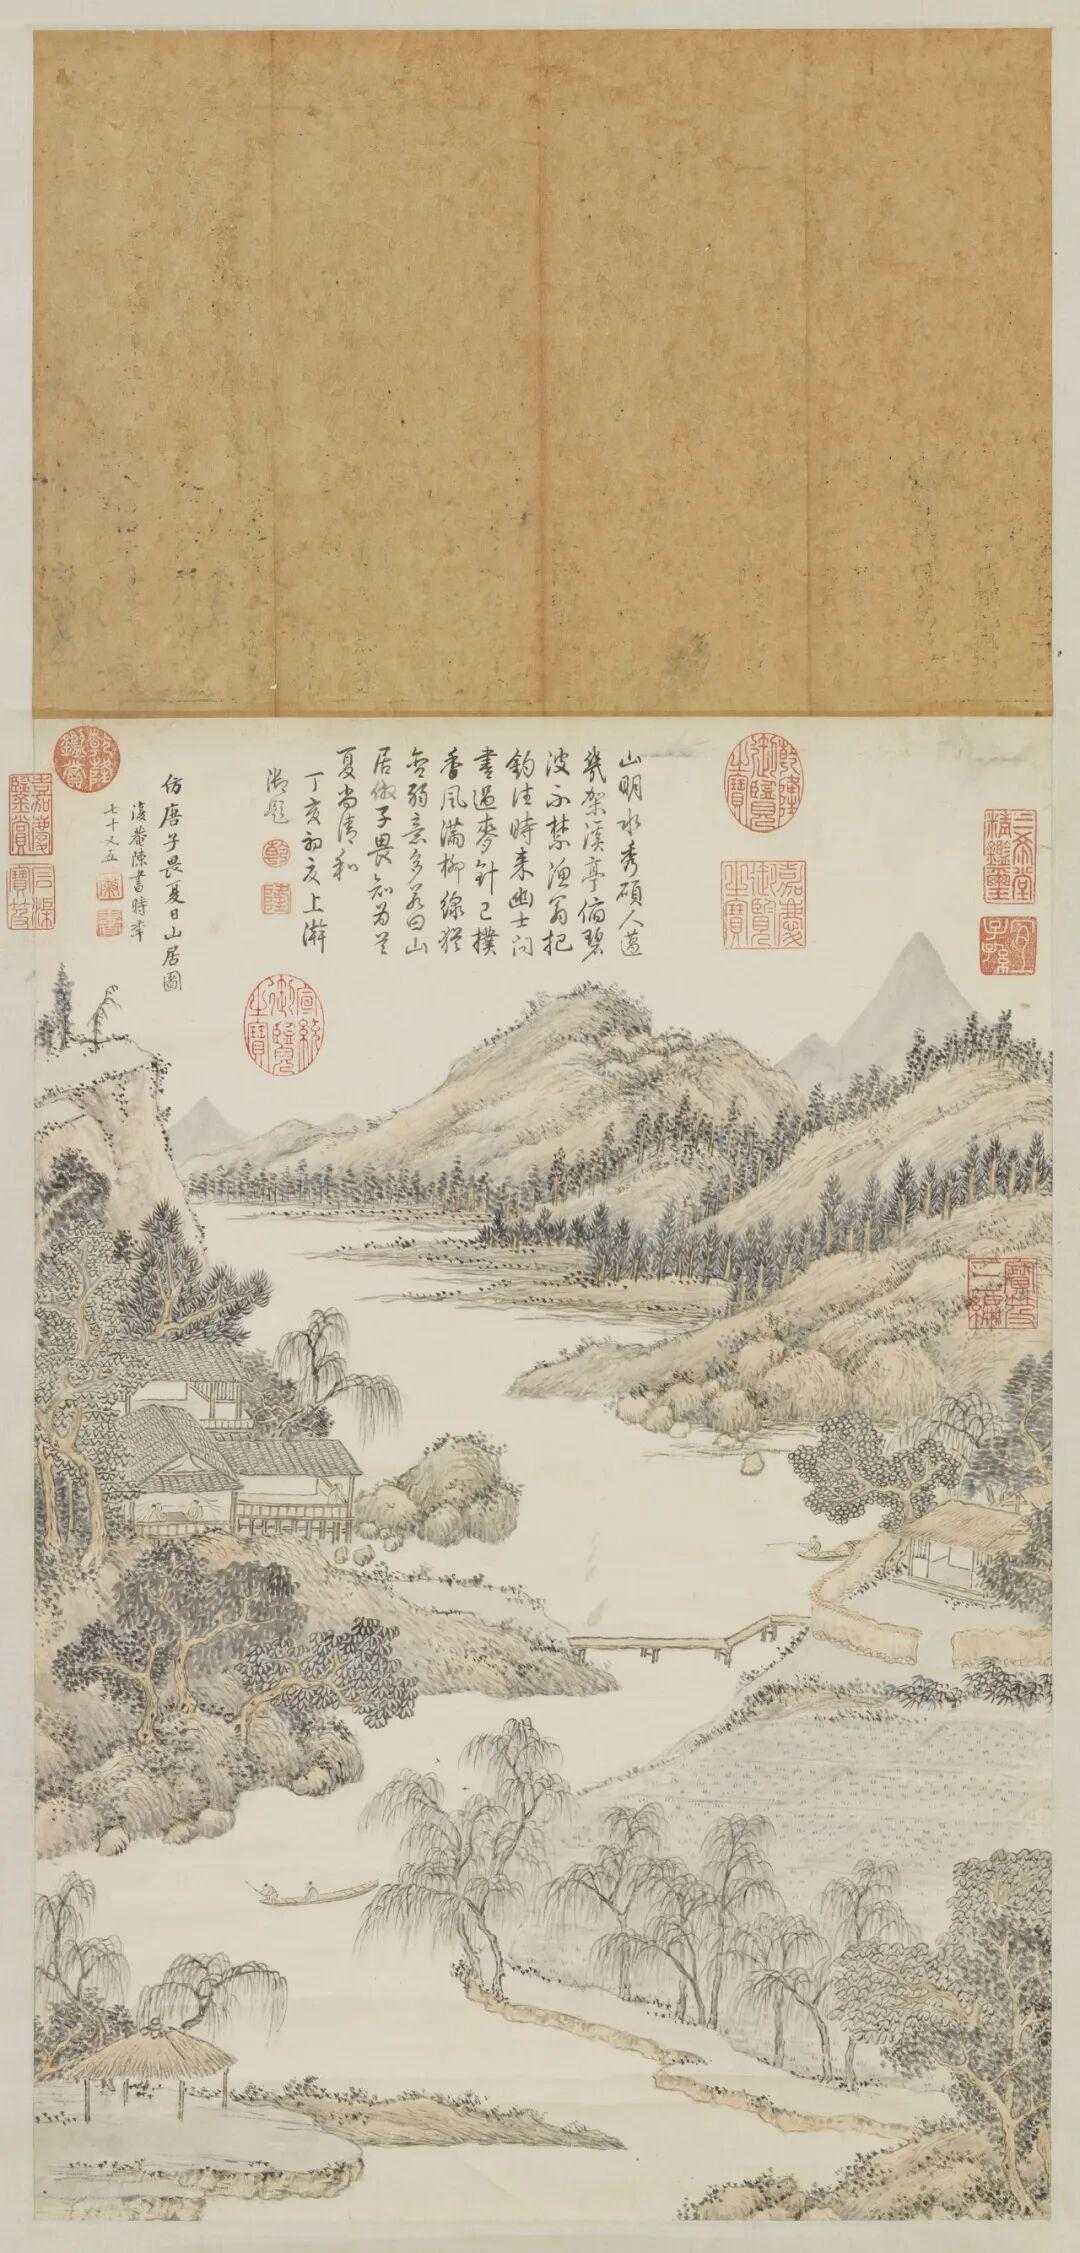 乾隆御覽之寶
嘉慶御覽之寶
三希堂精鑑璽
宜子孫
寶笈三編
山明水秀碩人薖
幾架溪亭俯碧
波不禁漁翁把
釣往時来幽士問
書過麥針已撲
香風滿柳線猶
含弱意多若曰山
居倣子畏知为首
夏尚清和
丁亥初夏上澣
御題
乾
隆
宣統御覽之寶
仿唐子畏夏日山居圖
復菴陳書時年
七十又五
乾隆鑑賞
嘉慶鑑賞
石渠寶笈